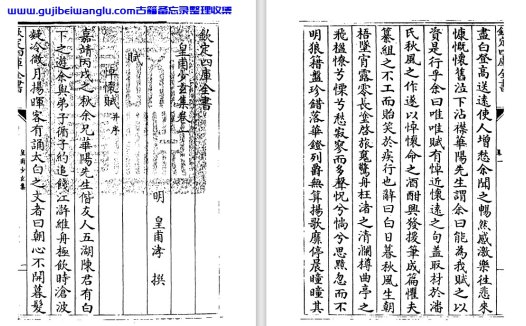 www.gujibeiwanglu.com古籍备忘录整理收集
欽定四庫全書
皇甫少玄集卷一
明 皇甫涍 撰
賦
悼懷賦 并序
嘉靖丙戌之秋余兄華陽先生偕友人五湖陳君有白
下之遊余與弟子循子約追餞江滸維舟極飲時滄波
凝冷微月揚暉客有誦太白之文者曰朝心不開暮髮
欽定四庫全書
皇甫少玄集
盡白登高送遠使人增愁余聞之暢然感激樂往悲來
慷慨懷舊泣下沾襟華陽先生謂余曰能為我賦之以
資是行乎余曰唯唯賦有悼近懷遠之句蓋取材於潘
氏秋風之作遂以悼懷命之酒酣興發援筆成篇懼夫
纂組之不工而貽笑於疾行也辭曰白日暮秋風生朝
梧墜宵露零長堂啓旅鴈驚舟枉渚之清瀾樽曲亭之
飛楹憭兮慄兮愁寂寥而多聲怳兮惝兮思黯忽而不
明狼藉盤珍錯落華鐙列爵無算揚歌靡停晨曈曈其